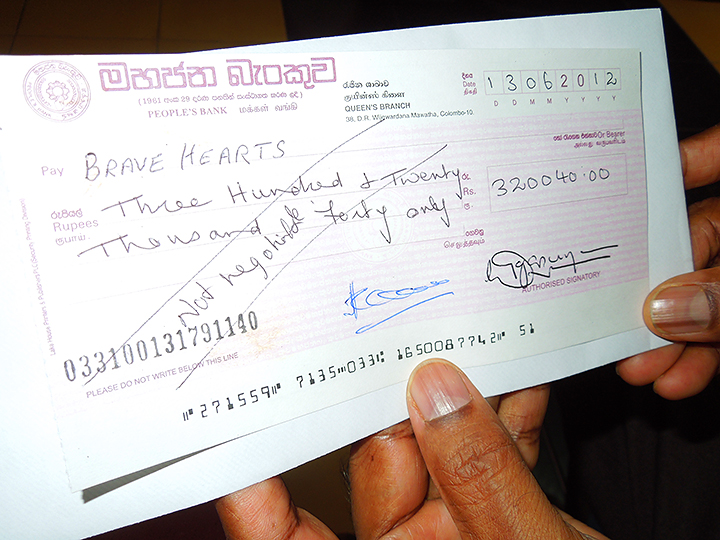 මහජන බැංකුව
(1961 අංක 29 දරණ පනතින් සංස්ථාගත කරණ ලදි)
PEOPLE'S BANK மக்கள் வங்கி
රැජින ශාඛාව
குயின்ஸ் கிளை
QUEEN'S BRANCH
38, D.R. Wijewardana Mawatha, Colombo-10
දිනය
Date
திகதி
13062012
D D M M Y Y Y Y
Pay BRAVE HEARTS
Or Bearer
රුපියල්
Rupees
ரூபாய்
Three Hundred & Twenty
Thousand forty only
රු.
Rs.
ரூ
320040.00
ගෙවනු
செலுத்தவும்
Not negotiable
AUTHORISED SIGNATORY
033100131791140
PLEASE DO NOT WRITE BELOW THIS LINE
⑈271559⑈ 7135⑉033⑆ 165008774 2⑈ 51